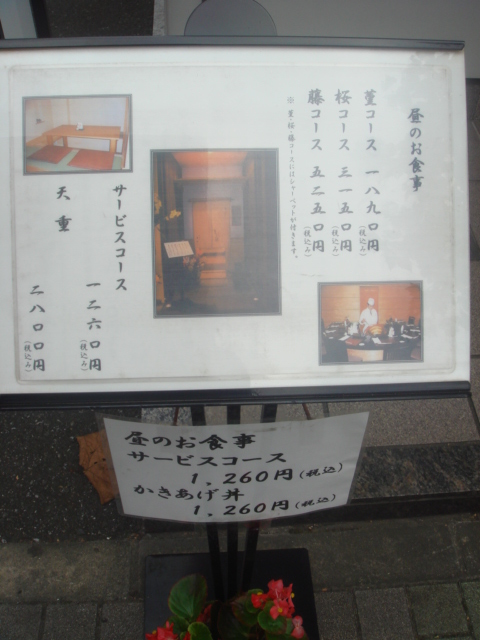 昼のお食事
菫コース 一八九〇円(税込み)
桜コース 三一五〇円(税込み)
藤コース 五二五〇円(税込み)
※ 菫・桜・藤コースにはシャーベットが付きます。
サービスコース 一二六〇円(税込み)
天重 二八〇〇円(税込み)
昼のお食事
サービスコース
1,260円(税込)
かきあげ丼
1,260円(税込)